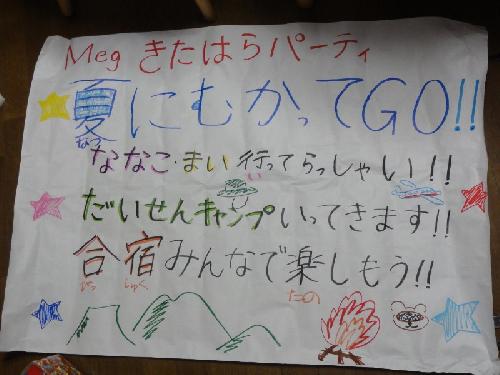 Meg きたはらパーティ
夏にむかってGO!!
なつ
ななこ・まい 行ってらっしゃい!!
い
だいせんキャンプいってきます!!
合宿みんなで楽しもう!!
がっ しゅく たの